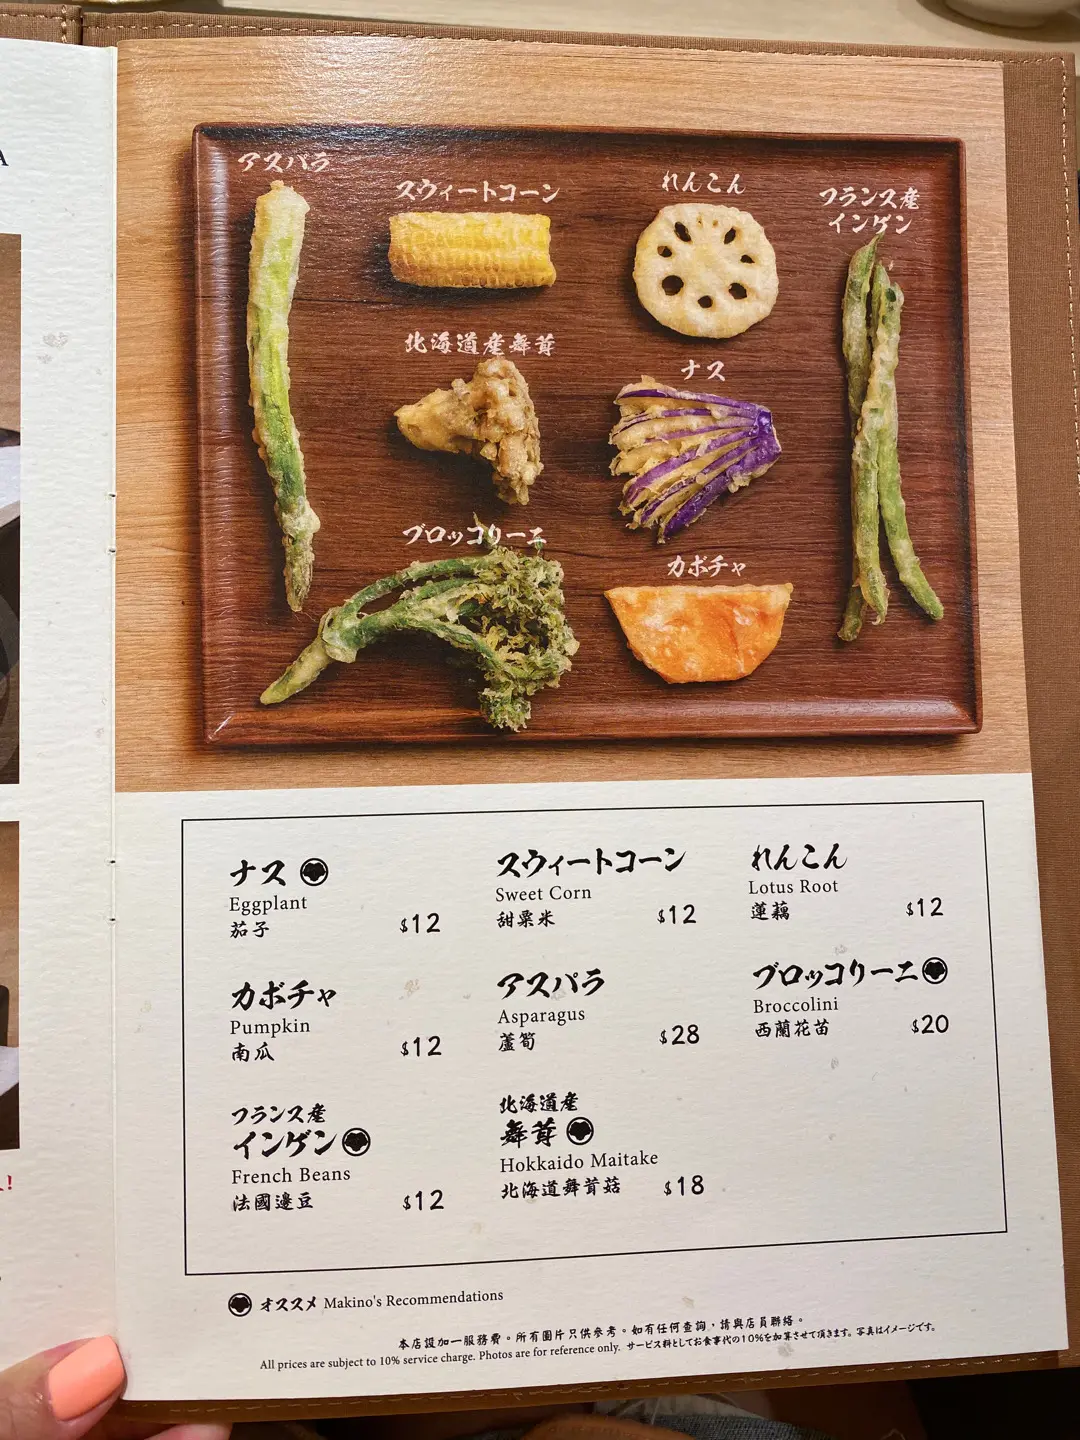 A
アスパラ
スウィートコーン
れんこん
フランス産
インゲン
北海道産舞茸
ナス
ブロッコリーニ
カボチャ
ナス
Eggplant
茄子
$12
スウィートコーン
Sweet Corn
甜粟米
$12
れんこん
Lotus Root
蓮藕
$12
カボチャ
Pumpkin
南瓜
$12
アスパラ
Asparagus
蘆筍
$28
ブロッコリーニ
Broccolini
西蘭花苗
$20
フランス産
インゲン
French Beans
法國邊豆
$12
北海道産
舞茸
Hokkaido Maitake
北海道舞茸菇
$18
オススメ Makino's Recommendations
本店設加一服務費。所有圖片只供參考。如有任何查詢，請與店員聯絡。
All prices are subject to 10% service charge. Photos are for reference only. サービス料としてお食事代の10%を加算させて頂きます。写真はイメージです。
!